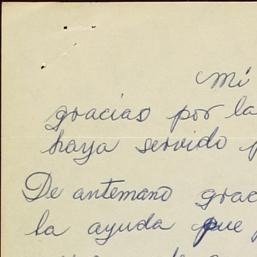 Mi
gracias por la
haya servido
De antemano grac
la ayuda que